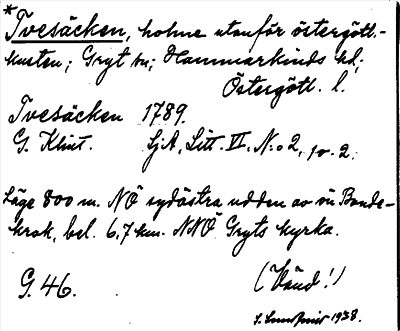 *Tvesäcken, holme utanför östergötl.-
kusten; Gryt sn; Hammarkinds hd;
Östergötl. l.
Tvesäcken 1789.
G. Klint. SjA, Litt. VI, N:o 2, 10.2.
Läge 800 m. NÖ sydöstra udden av ön Bonde-
krok, bel. 6,7 km. NNÖ Gryts kyrka.
G. 46. (Vänd!)
1938.